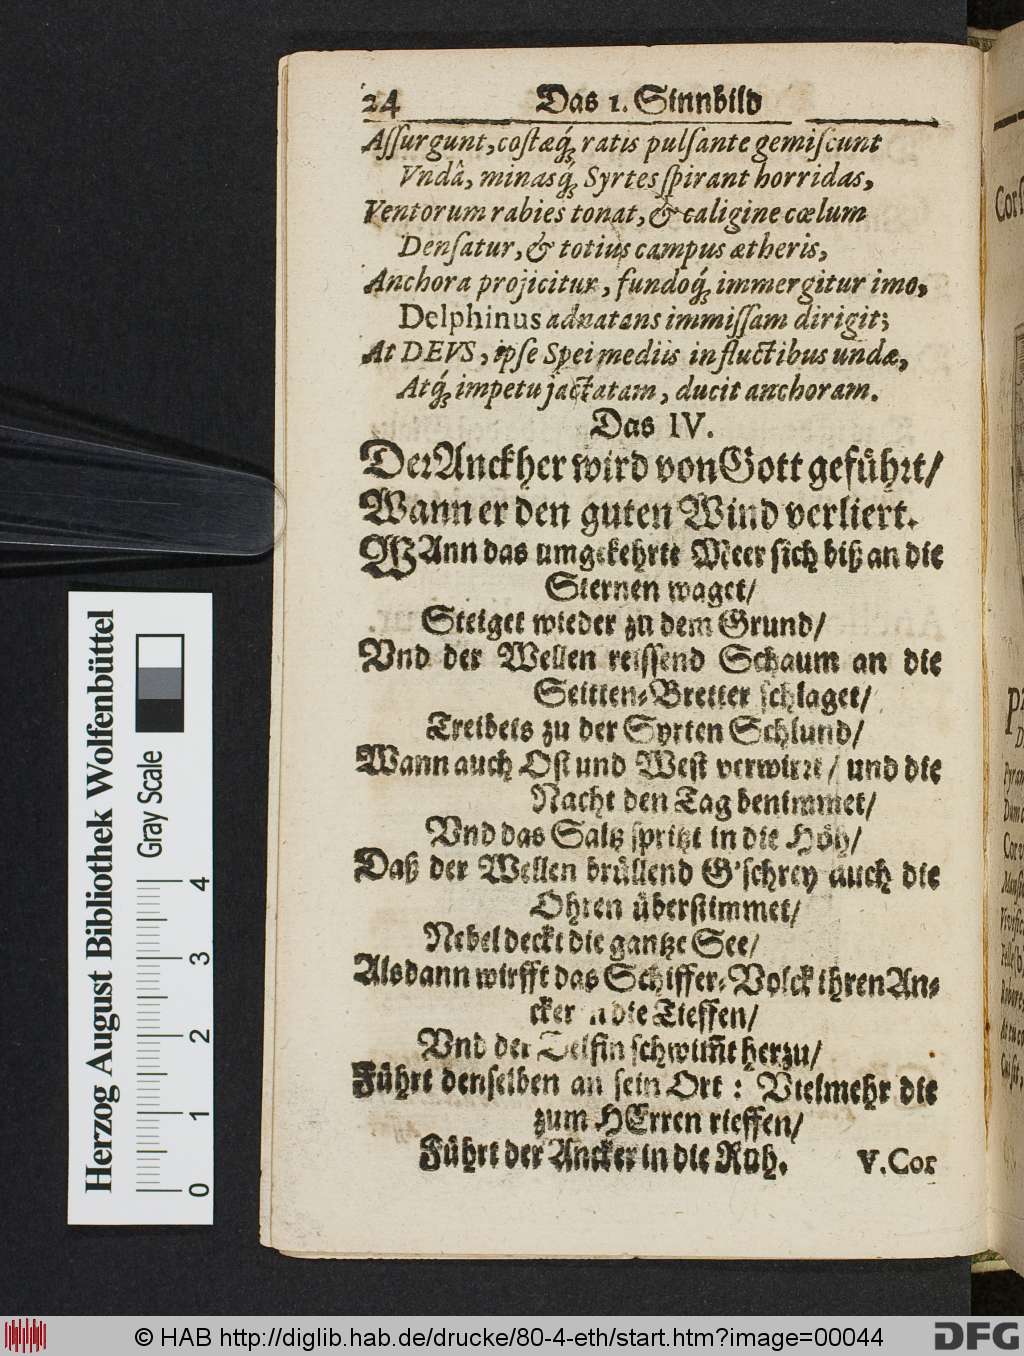 24 Das 1. Sinnbild
Assurgunt, costæq́ꝫ ratis pulsante gemiscunt
Vndâ, minasq́ꝫ Syrtes spirant horridas,
Ventorum rabies tonat, & caligine cœlum
Densatur, & totius campus ætheris,
Anchora projicitur, fundoq́ꝫ immergitur imo,
Delphinus adnatans immissam dirigit;
At DEVS, ipse Spei mediis in fluctibus undæ,
Atq́ꝫ impetu jactatam, ducit anchoram.
Das IV.
Der Anckher wird von Gott geführt/
Wann er den guten Wind verliert.
WAnn das umgekehrte Meer sich biß an die
Sternen waget/
Steiget wieder zu dem Grund/
Vnd der Wellen reissend Schaum an die
Seitten-Bretter schlaget/
Treibets zu der Syrten Schlund/
Wann auch Ost und West verwirrt/ und die
Nacht den Tag benimmet/
Vnd das Saltz spritzt in die Höh/
Daß der Wellen brüllend G'schrey auch die
Ohren überstimmet/
Nebel deckt die gantze See/
Alsdann wirfft das Schiffer-Volck ihren An-
cker die Tieffen/
Vnd der Delfin schwim̃t herzu/
Führt denselben an sein Ort: Vielmehr die
zum HErren rieffen/
Führt der Ancker in die Ruh.
V. Cor
Herzog August Bibliothek Wolfenbüttel
Gray Scale
0 1 2 3 4
© HAB http://diglib.hab.de/drucke/80-4-eth/start.htm?image=00044
DFG